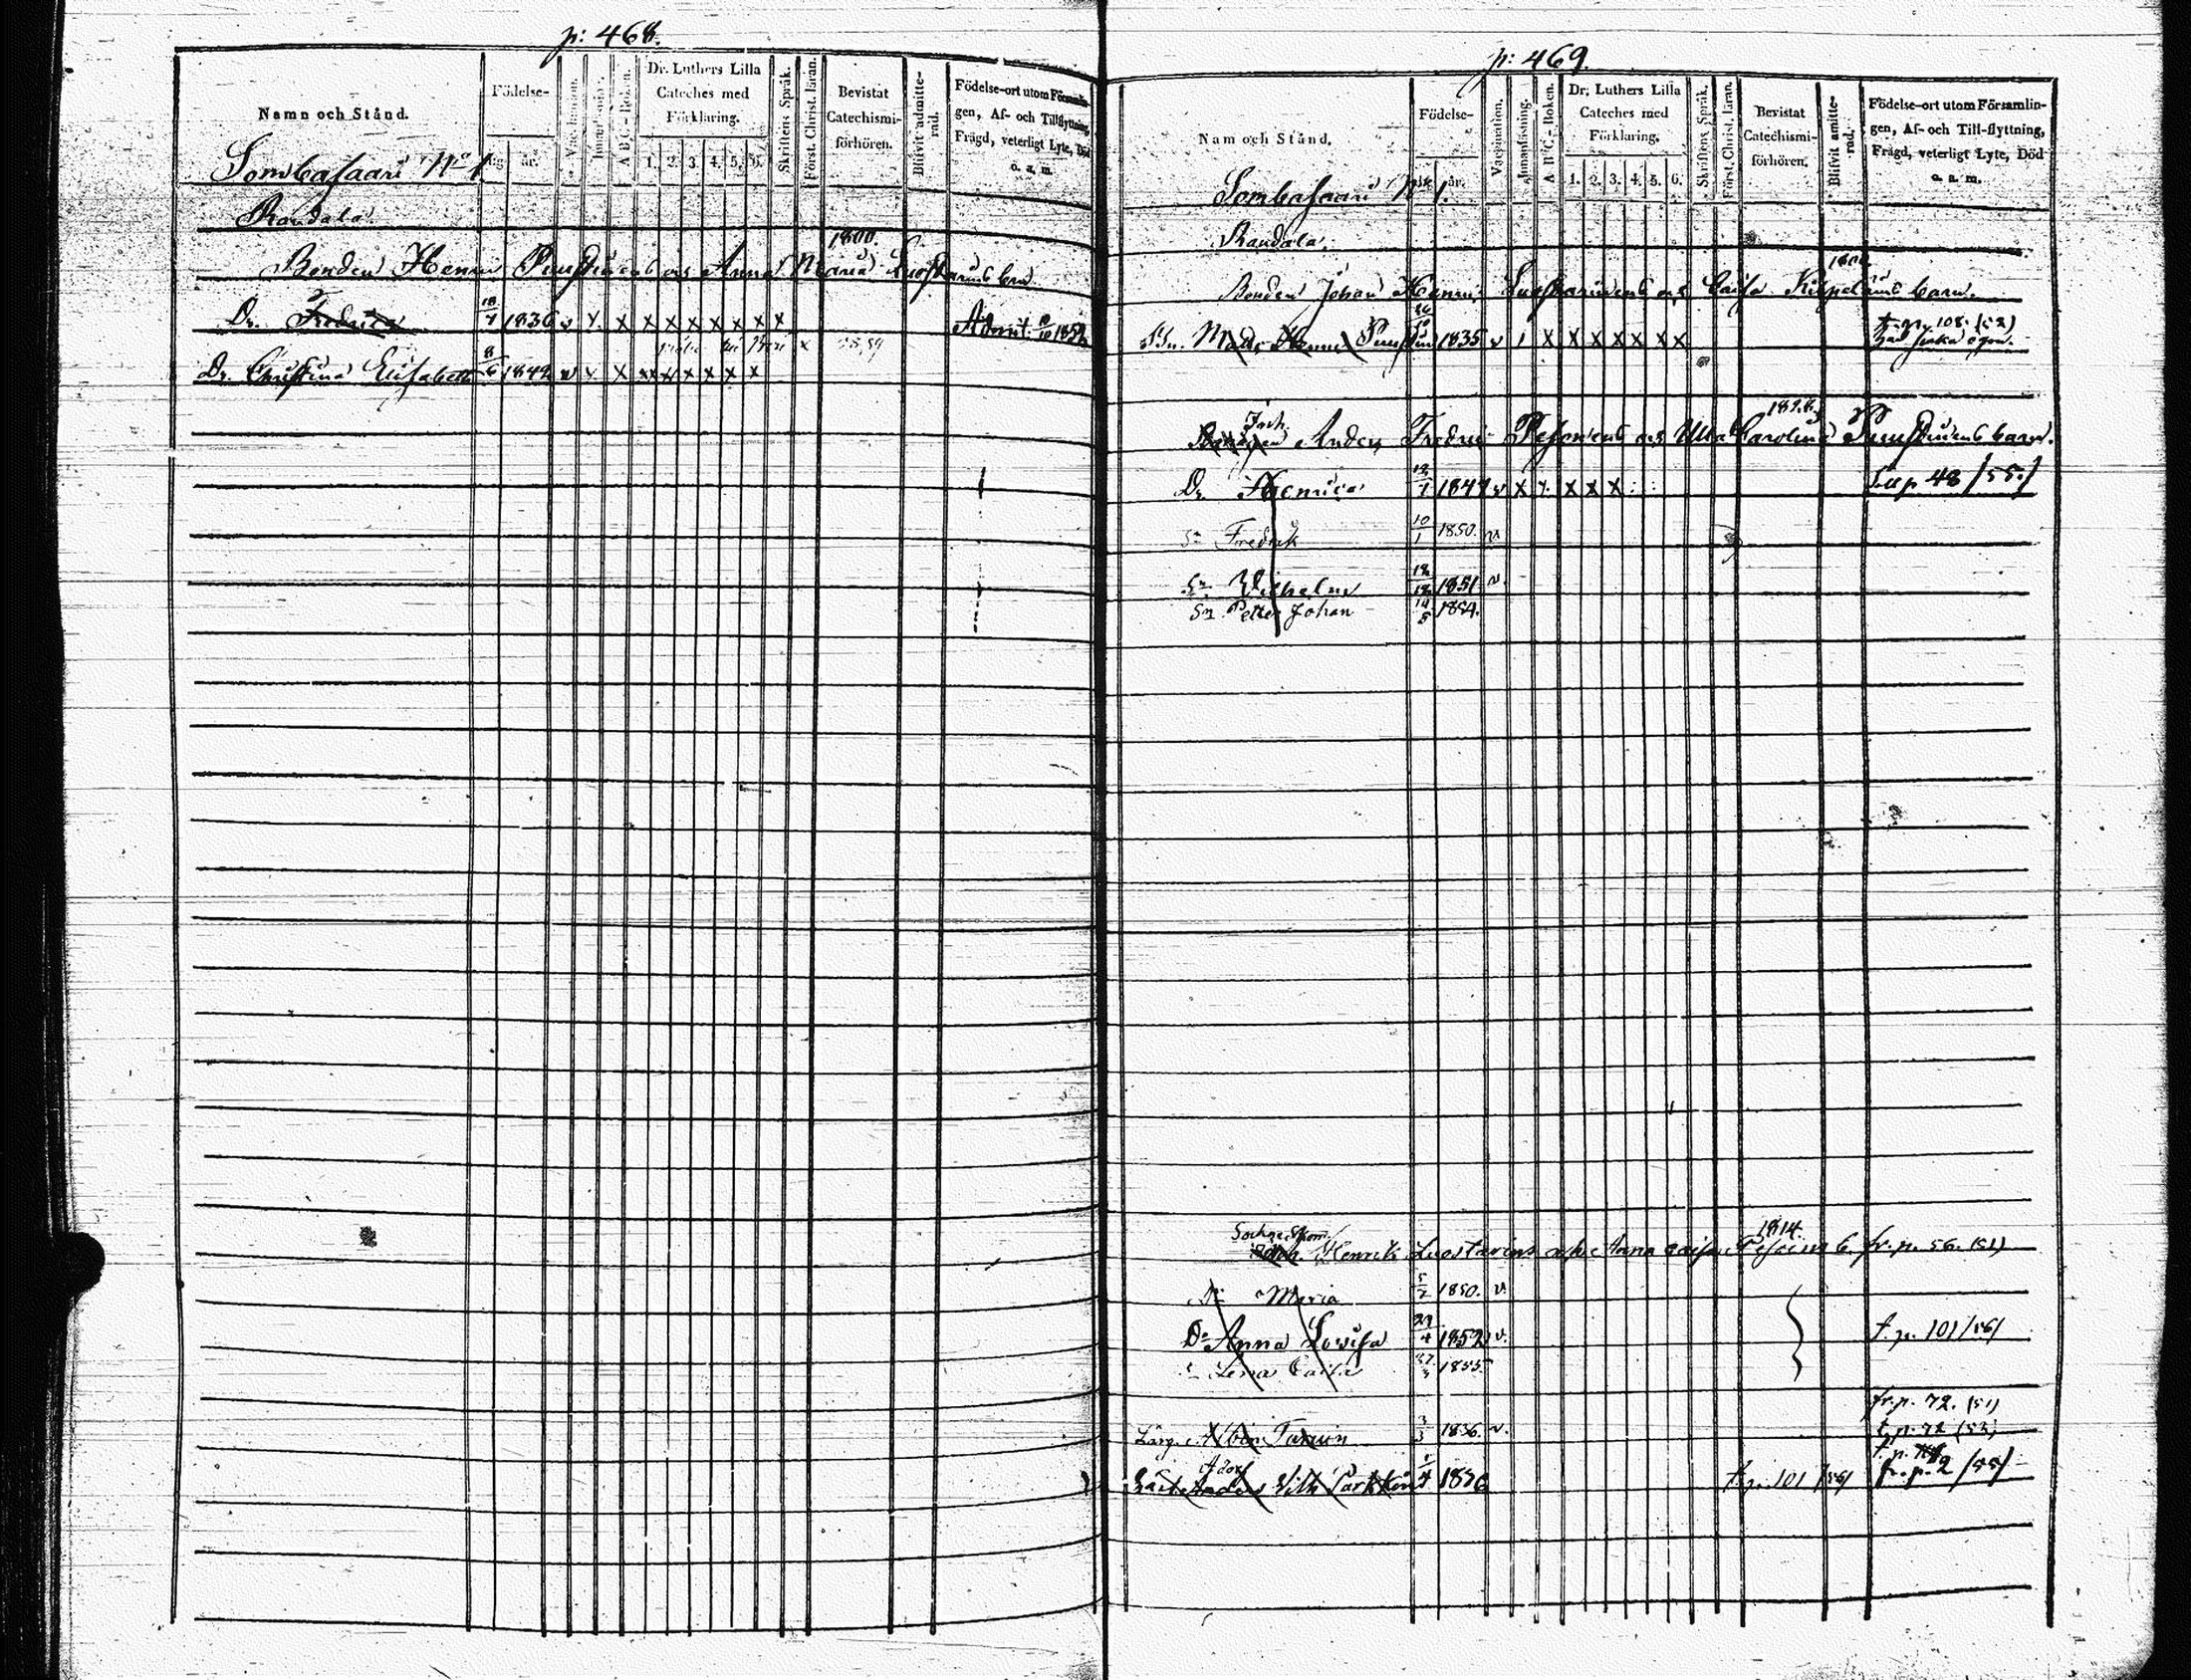 p: 468.
Namn och Stånd.
Födelse-
dag år.
Vaccination.
Innanläsning.
A B C - Boken.
Dr. Luthers Lilla
Cateches med
Förklaring.
1. 2. 3. 4. 5. 6.
Skriftens Språk.
Först. Christ. läran.
Bevistat
Catechismi-
förhören.
Blifvit admitte-
rad.
Födelse-ort utom Församlin-
gen, Af- och Tillflyttning,
Frägd, veterligt Lyte, Död
o. a. m.
Sombasaari No 1.
Raudala
1800.
Bonden Henric Puustinens och Anna Maria Luostarins barn
Dr. Fredrica 18/7 1836 v x x x x x x x x x Admit. 10/10 1852
Dr. Christina Elisabeth 8/6 1842 v x x x x x x x x
p: 469.
Namn och Stånd.
Födelse-
dag år.
Vaccination.
Innanläsning.
A B C - Boken.
Dr. Luthers Lilla
Cateches med
Förklaring.
1. 2. 3. 4. 5. 6.
Skriftens Språk.
Först. Christ. läran.
Bevistat
Catechismi-
förhören.
Blifvit amitte-
rad.
Födelse-ort utom Försämlin-
gen, Af- och Till-flyttning,
Frägd, veterligt Lyte, Död
o. a. m.
Sombasaari No 1.
Raudala
Bonden Johan Henric Luostarinens och Caisa Kilpeläins barn.
Sn. Mats Henric 1835 v x x x x x x x t. p. 108. (52)
har sjuka ögon.
1828.
Inh. Anders Fredric Pesonens och Ulla Carolina Puustinens barn.
Dr. Henrica 12/7 1847 v x x x x x Se p. 48 /55./
Sn Fredrik 10/1 1850. v
Sn. Vilhelm 18/12 1851 v.
Sn Petter Johan 14/8 1854.
1814.
Sockne Skom. Henrik Luostarins o. h. Anna Caisa b. fr. p. 56. (51)
Dr Maria 5/2 1850. v
Dr Anna Lovisa 29/4 1852 v. t. p. 101 /56/
Lena Caisa 1855
fr. p. 72. (51)
Lärg. Albin 3/3 1836. v. t. p. 72 (53)
Adolf Vilh. 1836 t. p. 101 /56/ fr. p. 2 /55/